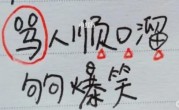 骂人顺口溜
句句爆笑